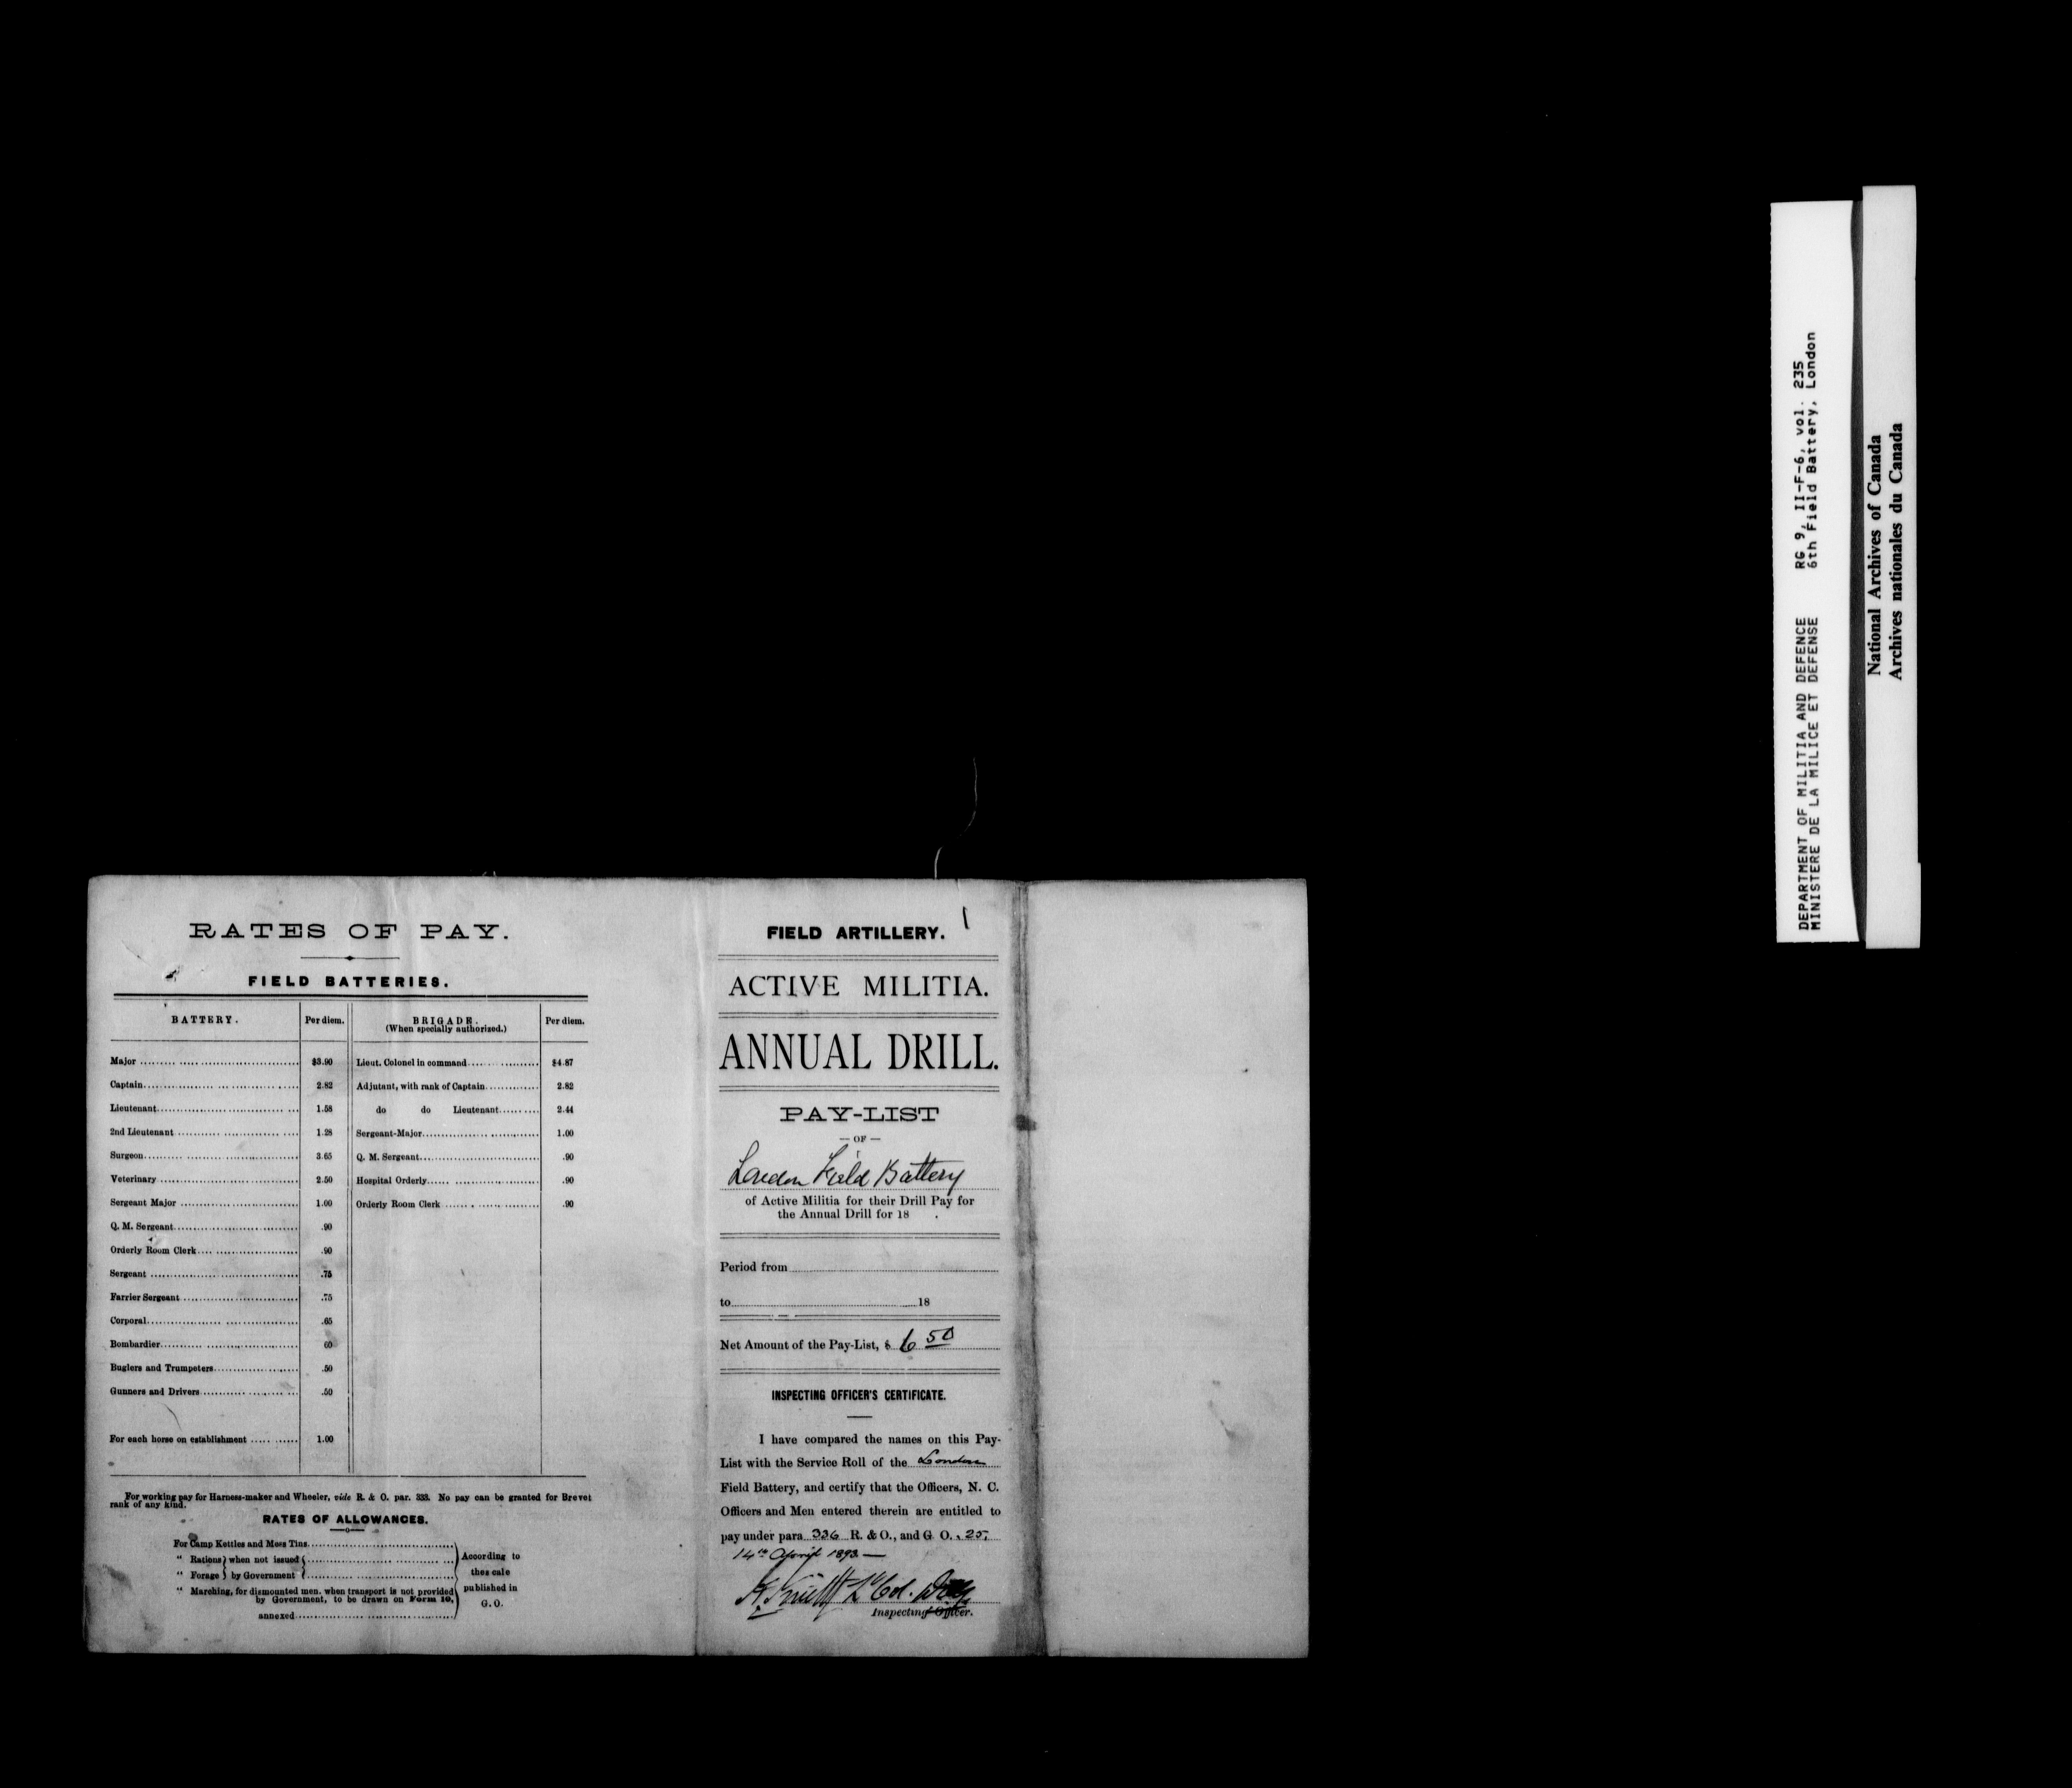 RATES OF PAY.
FIELD BATTERIES.
BATTERY. Per diem. BRIGADE. (When specially authorized.) Per diem.
Major $3.90 Lieut. Colonel in command $4.87
Captain 2.82 Adjutant, with rank of Captain 2.82
Lieutenant 1.58 do do Lieutenant 2.44
2nd Lieutenant 1.28 Sergeant-Major 1.00
Surgeon 3.65 Q. M. Sergeant .90
Veterinary 2.50 Hospital Orderly .90
Sergeant Major 1.00 Orderly Room Clerk .90
Q. M. Sergeant .90
Orderly Room Clerk .90
Sergeant .75
Farrier Sergeant .75
Corporal .65
Bombardier 60
Buglers and Trumpeters .50
Gunners and Drivers .50
For each horse on establishment 1.00
For working pay for Harness-maker and Wheeler, vide R. & O. par. 333. No pay can be granted for Brevet
rank of any kind.
RATES OF ALLOWANCES.
For Camp Kettles and Mess Tins
" Rations } when not issued {
" Forage } by Government {
" Marching, for dismounted men, when transport is not provided
by Government, to be drawn on Form 10,
annexed
According to
thes cale
published in
G.O.
1
FIELD ARTILLERY.
ACTIVE MILITIA.
ANNUAL DRILL.
PAY-LIST
— OF —
London Field Battery
of Active Militia for their Drill Pay for
the Annual Drill for 18 .
Period from
to 18
Net Amount of the Pay-List, $ 6 50
INSPECTING OFFICER'S CERTIFICATE.
I have compared the names on this Pay-
List with the Service Roll of the London
Field Battery, and certify that the Officers, N. C.
Officers and Men entered therein are entitled to
pay under para 336 R. & O., and G. O. 25,
14th April 1893 —
Lt Col.
Inspecting Officer.
DEPARTMENT OF MILITIA AND DEFENCE RG 9, II-F-6, vol. 235
MINISTERE DE LA MILICE ET DEFENSE 6th Field Battery, London
National Archives of Canada
Archives nationales du Canada